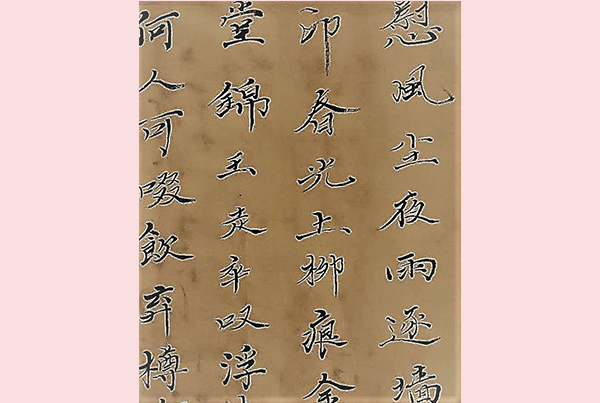 慰風尘夜雨逐墙
印春光上柳痕金
堂錦玉走卒叹浮
何人可啜飲弃樽